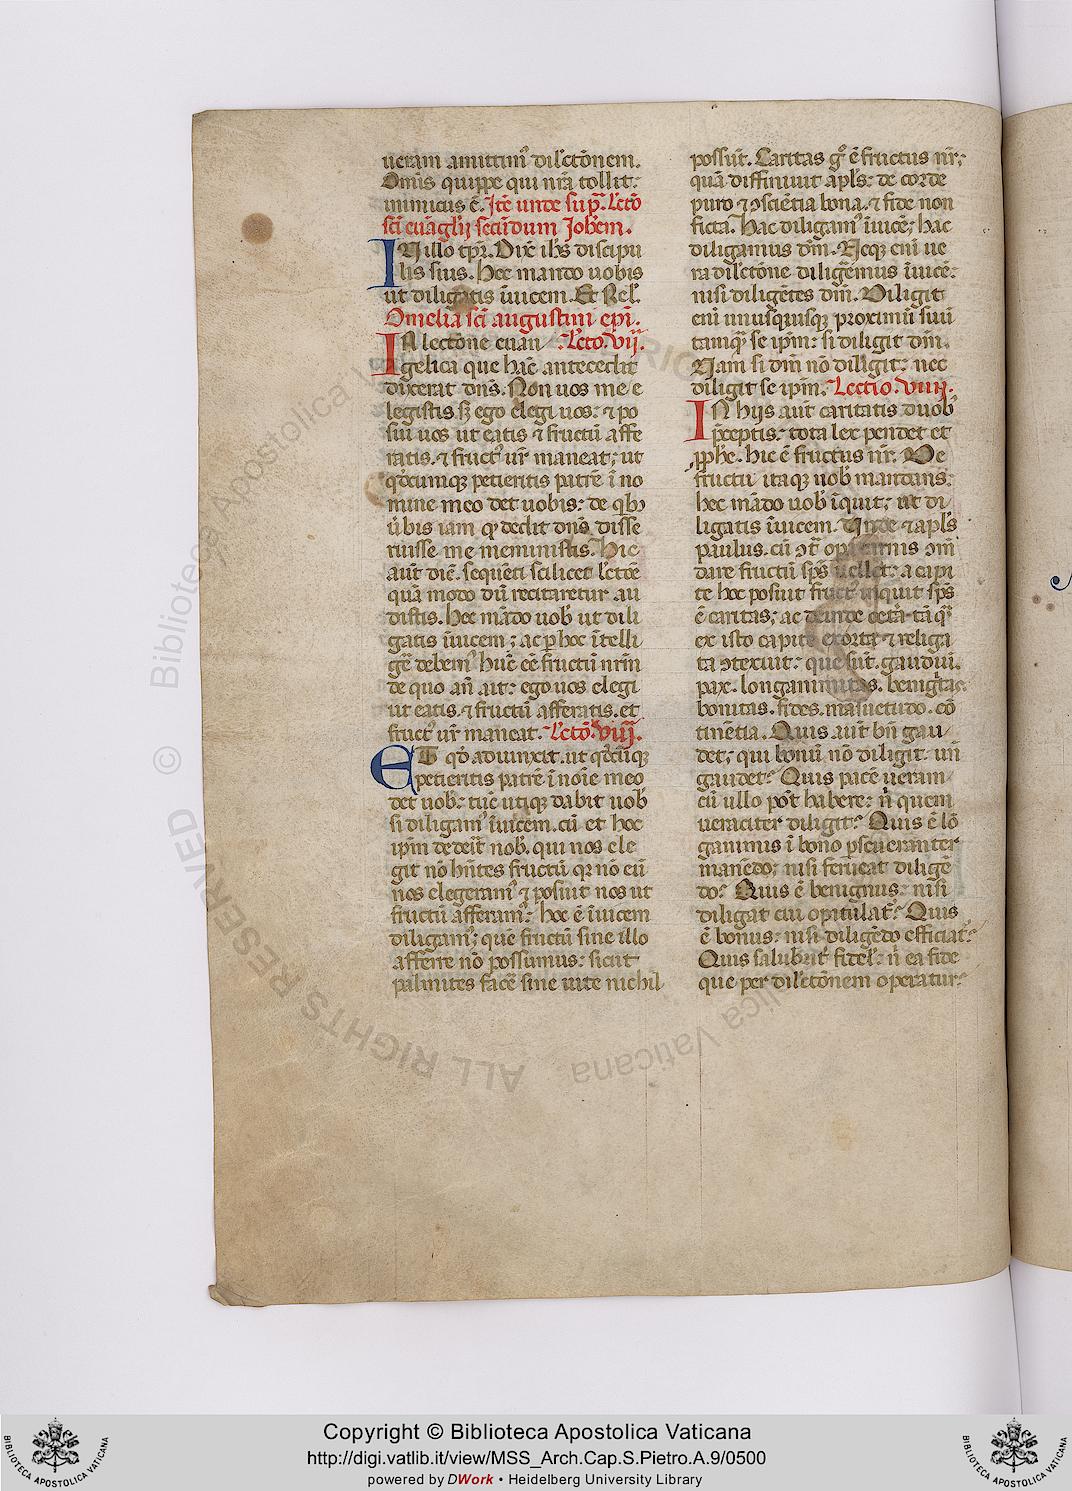 ueram amittim᷒ dilẽctõnem.
Om̃is quippe qui nr̃a tollit:
inimicus ẽ. Itẽ unde sup̃. lc̃tõ
sc̃i euãgl̃ij secũdum Joh̃em.
IN illo tp̃r. Dix̃ ih̃s discipu
lis suis. Hec mando uobis
ut diligatis ĩuicem. Et Rel̃.
Omelia sc̃i augustini ep̃i.
IN lectone euan lc̃to. vij.
gelica que hãc antecedit
dixerat dñs. Non uos me e
legistis sꝫ ego elegi uos: ⁊ po
sui uos ut eatis ⁊ fructũ affe
ratis. ⁊ fruct᷒ ur̃ maneat; ut
qd̃cumqꝫ petieritis patrẽ ĩ no
mine meo det uobis: de qbꝫ
ũbis iam qꝫ dedit dñs disse
ruisse me meministis. Hic
aut̃ dic̃. sequẽti scilicet lc̃tõe
quã modo dũ recitaretur au
distis. Hec mãdo uob᷒ ut dili
gatis ĩuicem; ac ꝑ hoc ĩtelli
gẽ debem᷒ hũc eẽ fructũ nr̃m
de quo añ ait: ego uos elegi
ut eatis. ⁊ fructũ afferatis. et
fruct᷒ ur̃ maneat. lc̃tõ. viij.
ET qd̃ adiunxit. ut qd̃cũqꝫ
petieritis patrẽ ĩ noĩe meo
det uob᷒: tũc utiqꝫ dabit uob᷒
si diligam᷒ ĩuicem. cũ et hoc
ip̃m dederit nob᷒. qui nos ele
git nõ hñtes fructũ qꝛ nõ eũ
nos elegeram᷒ ⁊ posuit nos ut
fructũ afferam᷒: hoc ẽ ĩuicem
diligam᷒; quẽ fructũ sine illo
afferre nõ possumus: sicut
palmites facẽ sine uite nichil
possũt. Caritas gͦ ẽ fructus nr̃;
quã diffiniuit apl̃s: de corde
puro ⁊ ↄsciẽtia bona. ⁊ fide non
ficta. Hac diligam᷒ ĩuicẽ; hac
diligamus dm̃. Neqꝫ eni᷒ ue
ra dilc̃tõne diligẽmus ĩuicẽ:
nisi diligẽtes dm̃. Diligit
eni᷒ unusquisqꝫ proximũ suũ
tamqꝫ se ip̃m: si diligit dm̃.
Nam si dm̃ nõ diligit: nec
diligit se ip̃m. Lectio. viiij.
IN hijs aut̃ caritatis duob᷒
p̃ceptis: tota lex pendet et
ꝓphe. Hic ẽ fructus nr̃. De
fructu itaqꝫ nob᷒ mandans:
hec mãdo uob᷒ ĩquit; ut di
ligatis ĩuicem. Unde ⁊ apl̃s
paulus. cũ ↄt̃ opera carnis ↄm̃
dare fructũ sp̃s uellet: a capi
te hoc posuit fruct᷒ inquit sp̃s
ẽ caritas; ac deinde cetã tãqꝫ
ex isto capite exorta ⁊ religa
ta ↄtexuit: que sũt. gaudiũ.
pax. longanimitas. benigtas.
bonitas. fides. mãsuetudo. cõ
tinẽtia. Quis aut̃ bñ gau
det; qui bonũ nõ diligit un̄
gaudet? Quis pacẽ ueram
cũ ullo põt habere: ñ quem
ueraciter diligit? Quis ẽ lõ
ganimis ĩ bono ꝑseueranter
manẽdo; nisi ferueat diligẽ
do? Quis ẽ benignus: nisi
diligat cui opitulat᷒? Quis
ẽ bonus: nisi diligẽdo efficiat᷒?
Quis salubrit᷒ fidel᷒: ñ ea fide
que per dilc̃tõnem operatur?
© Biblioteca Apostolica Vaticana
ALL RIGHTS RESERVED
Copyright © Biblioteca Apostolica Vaticana
http://digi.vatlib.it/view/MSS_Arch.Cap.S.Pietro.A.9/0500
powered by DWork • Heidelberg University Library
BIBLIOTECA APOSTOLICA VATICANA
BIBLIOTECA APOSTOLICA VATICANA